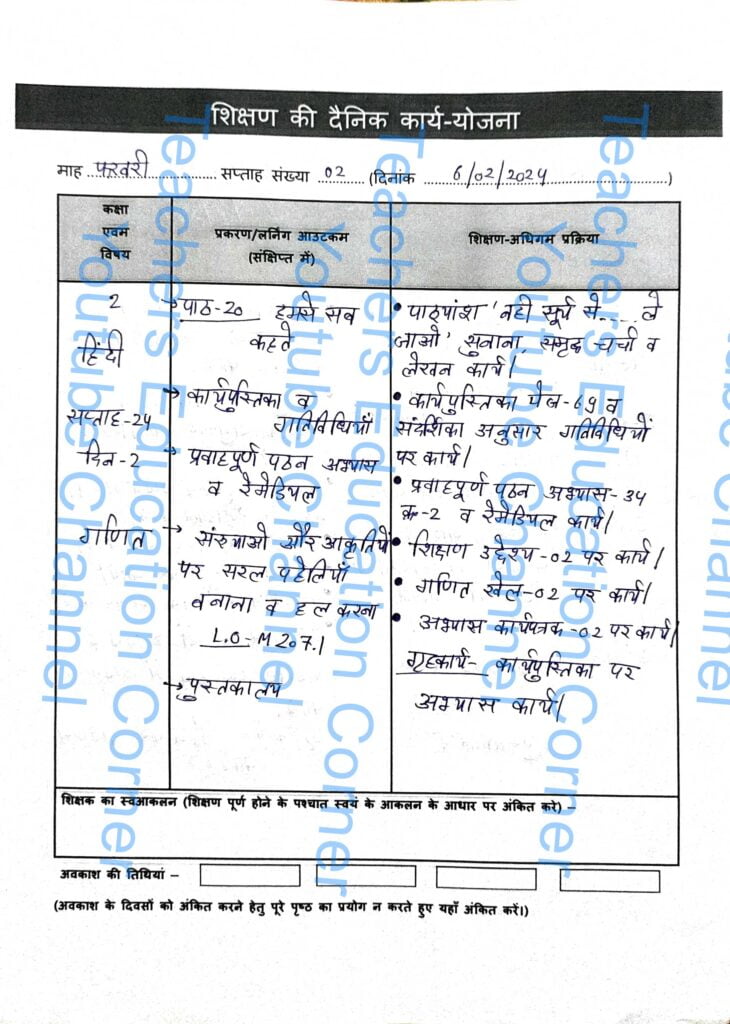 शिक्षण की दैनिक कार्य-योजना
माह फरवरी सप्ताह संख्या 02 (दिनांक 6/02/2024)
कक्षा
एवम
विषय
प्रकरण/लर्निग आउटकम
(संक्षिप्त में)
शिक्षण-अधिगम प्रक्रिया
2
हिंदी
सप्ताह-24
दिन-2
→ पाठ-20 हमसे सब
कहते
→ कार्यपुस्तिका व
गतिविधियाँ
→ प्रवाहपूर्ण पठन अभ्यास
व रेमेडियल
• पाठ्यांश 'नहीं सूर्य से..... ले
जाओ' सुनाना, समूह चर्चा व
लेखन कार्य।
• कार्यपुस्तिका पेज-69 व
संदर्शिका अनुसार गतिविधियों
पर कार्य।
• प्रवाहपूर्ण पठन अभ्यास-34
क-2 व रेमेडियल कार्य।
गणित
→ संख्याओ और आकृतियों
पर सरल पहेलियाँ
बनाना व हल करना
L.O-M207.1
→ पुस्तकालय
• शिक्षण उद्देश्य-02 पर कार्य।
• गणित खेल-02 पर कार्य।
• अभ्यास कार्यपत्रक-02 पर कार्य।
गृहकार्य- कार्यपुस्तिका पर
अभ्यास कार्य।
शिक्षक का स्वआकलन (शिक्षण पूर्ण होने के पश्चात स्वयं के आकलन के आधार पर अंकित करे) –
अवकाश की तिथियां –
(अवकाश के दिवसों को अंकित करने हेतु पूरे पृष्ठ का प्रयोग न करते हुए यहाँ अंकित करें।)
Teachers Education Corner
Youtube Channel
Teachers Education Corner
Youtube Channel
Teachers Education Corner
Youtube Channel